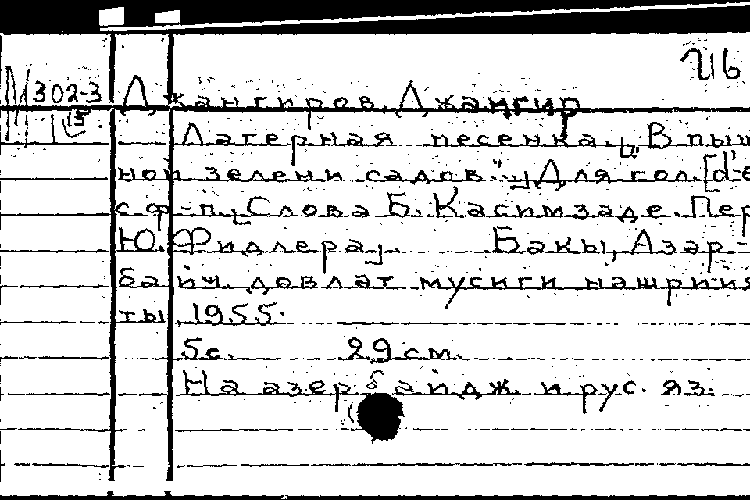 716
М 302-3 Джангиров, Джангир
15
Лагерная песенка. „В пыш
ной зелени садов." Для гол. [d-e
с ф-п. [Слова Б. Касимзаде. Пер
Ю. Фидлера]. Бакы, Азэр-
байч. довлат мусиги нашрийя
ты, 1955.
5с. 29 см.
На азербайдж. и рус. яз.